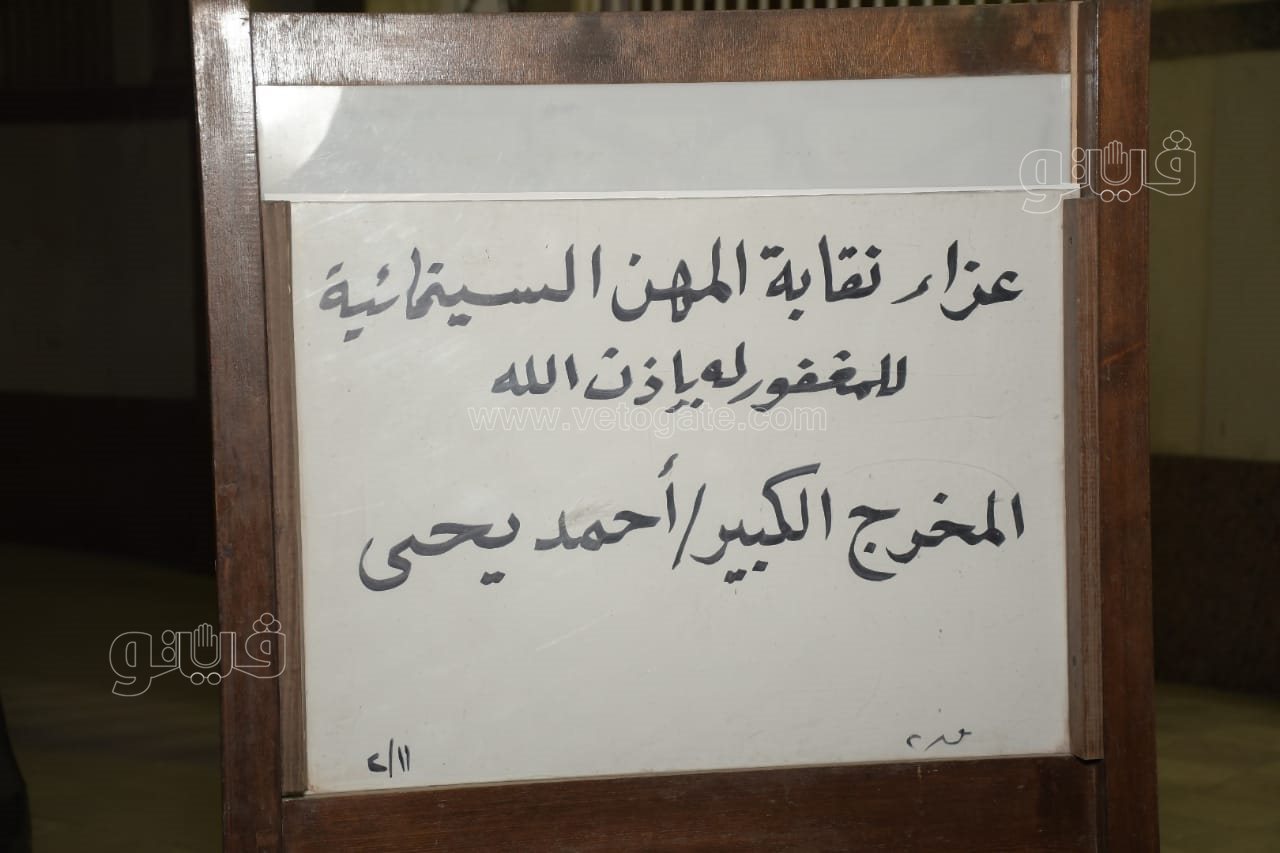 ڤيتو
عزاء نقابة المهن السينمائية
للمغفور له بإذن الله
www.vetogate.com
المخرج الكبير/أحمد يحيى
ڤيتو
٢/١١